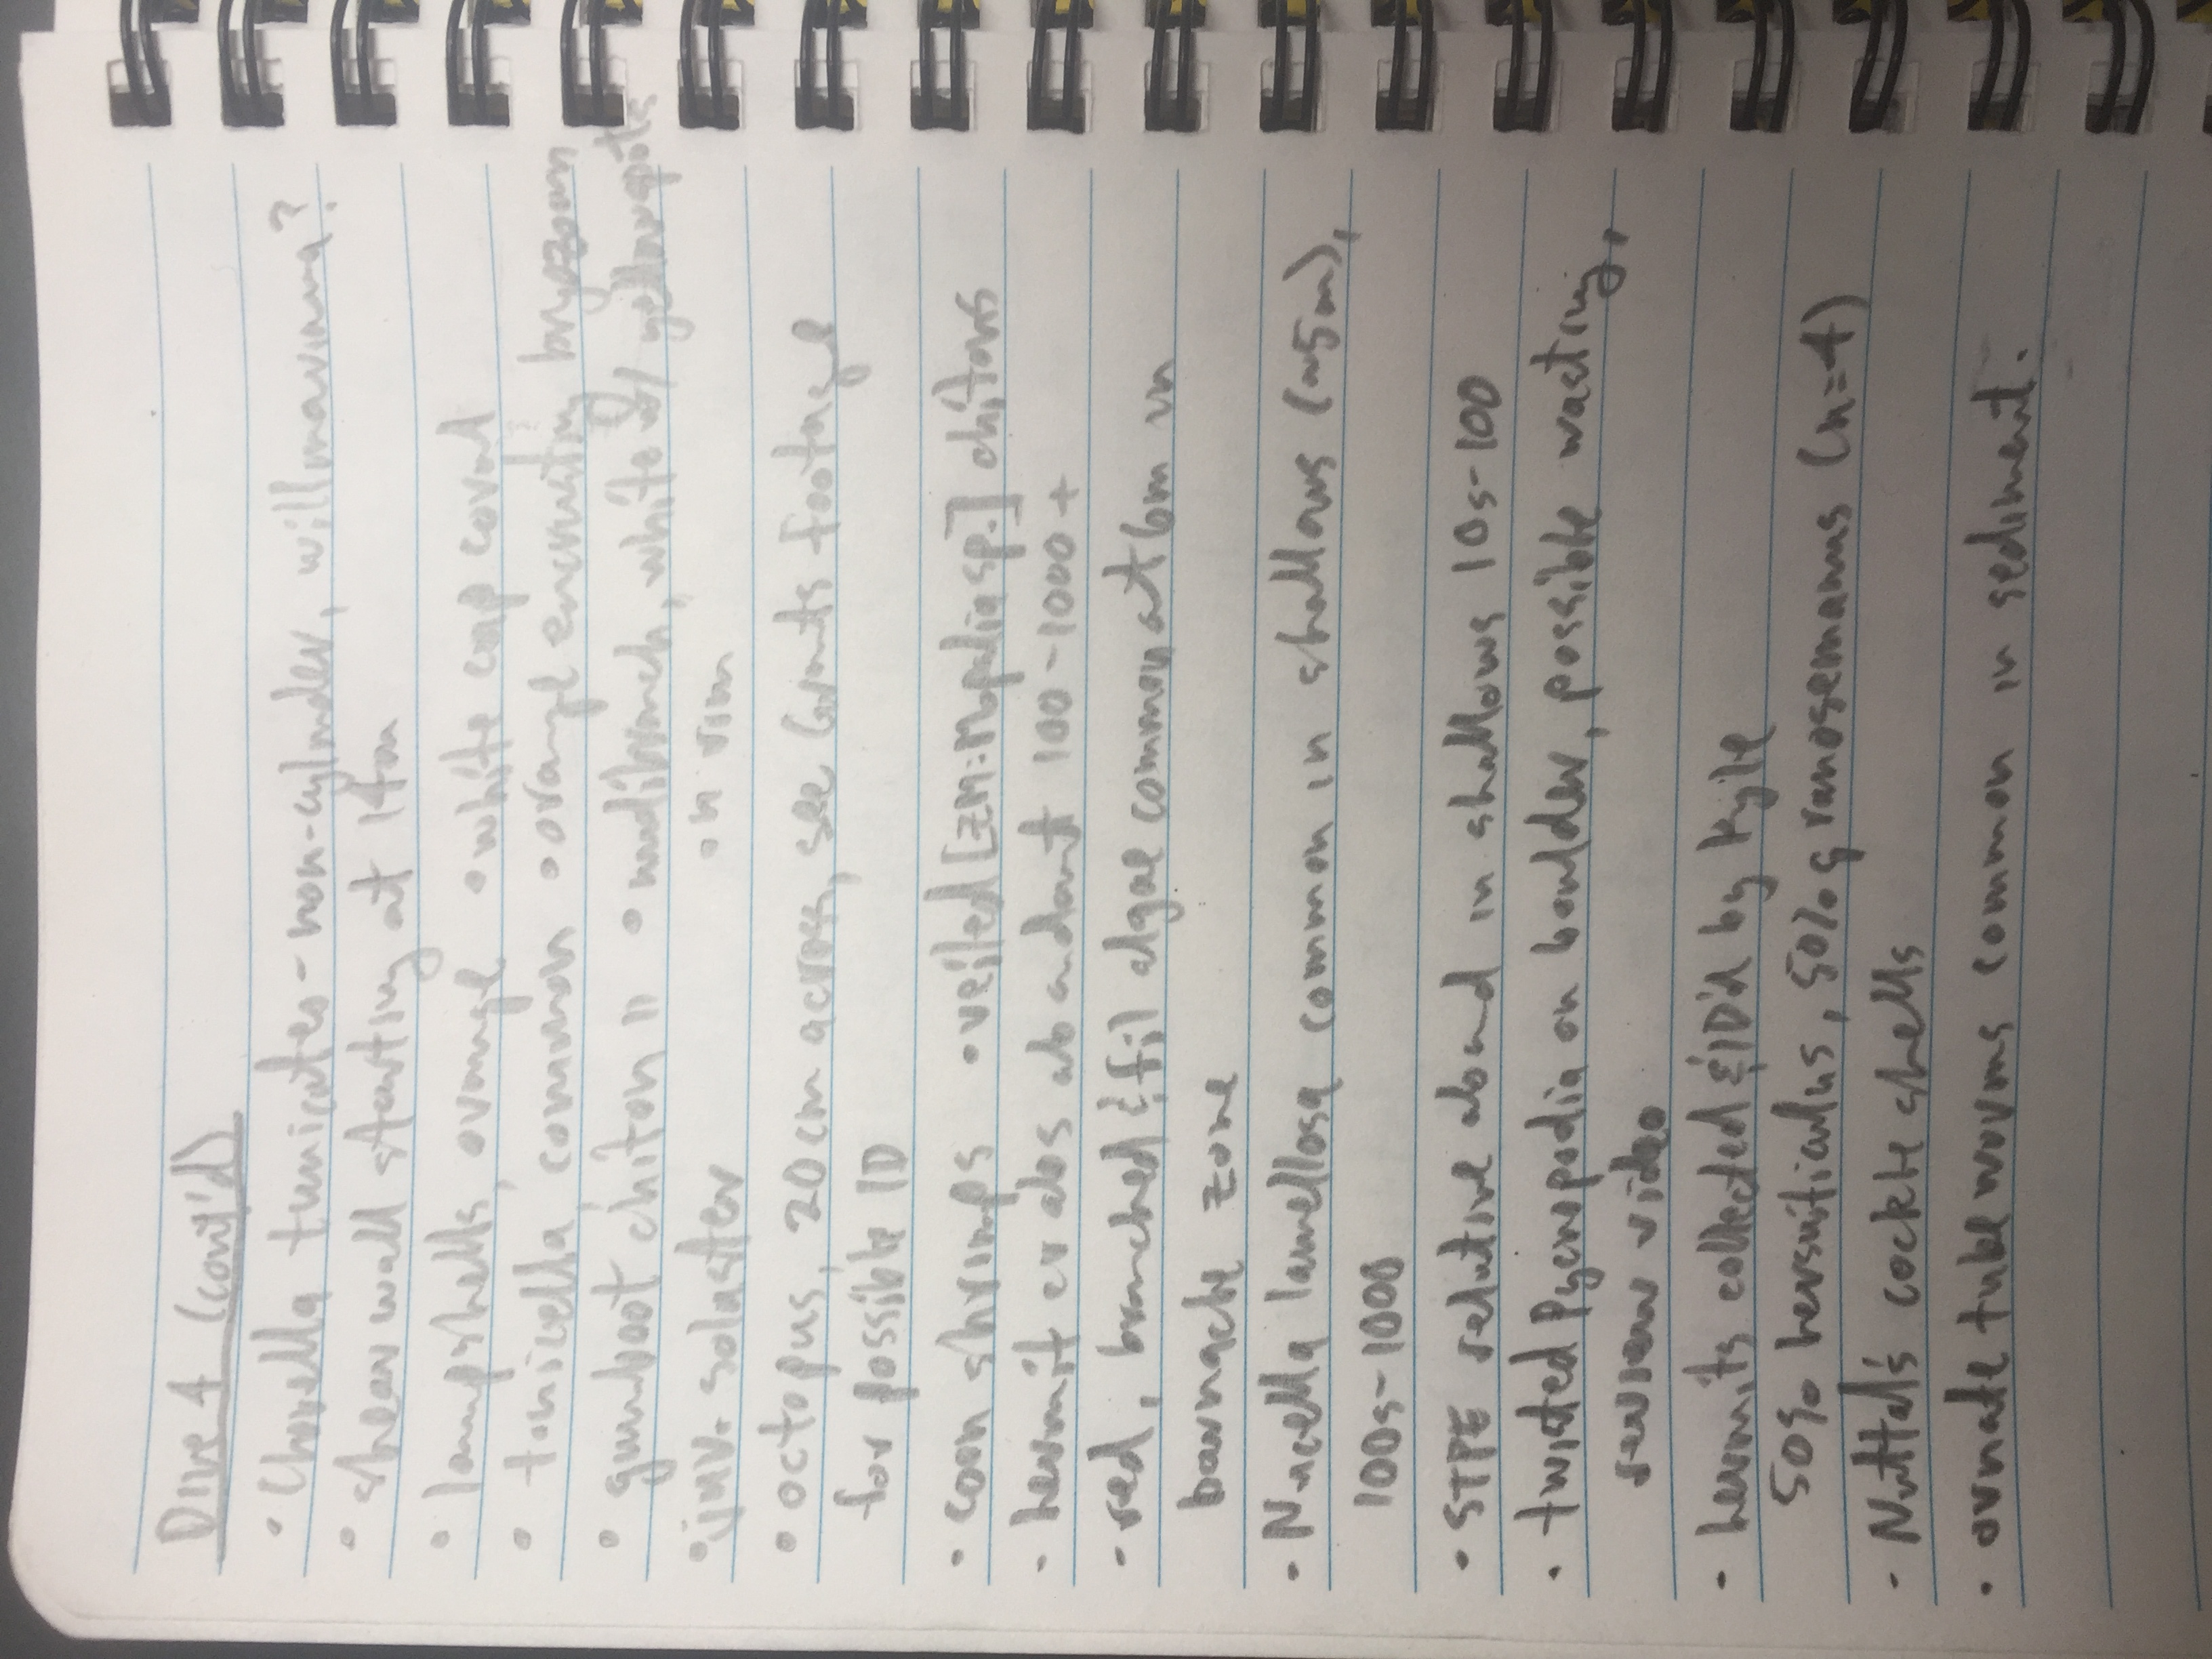 Dive 4 (cont'd)
• Chorella tunicates - non-cylinder, willmariana?
• shear wall starting at 14m
• lampshells, orange • white cup coral
• tonicella, common • orange encrusting bryozoan
• gumboot chiton 11 • nudibranch, white w/ yellow spots
• juv. solaster on rim
• octopus, 20cm across, see Grants footage
for possible ID
• coon shrimps • veiled [ZM: Mopalia sp.] chitons
- hermit crabs abundant 100-1000+
- red, branched & fil algae common at 6m in
barnacle zone
- Nucella lamellosa common in shallows (~5m),
100s-1000
• STPE relative abund in shallows 10s-100
• twisted Pycnopodia on boulder, possible wasting,
review video
- hermits collected & ID'd by Kyle
50% hersuiticulus, 50% granosemanus (n=4)
- Nuttal's cockle shells
• ornate tube worms common in sediment.